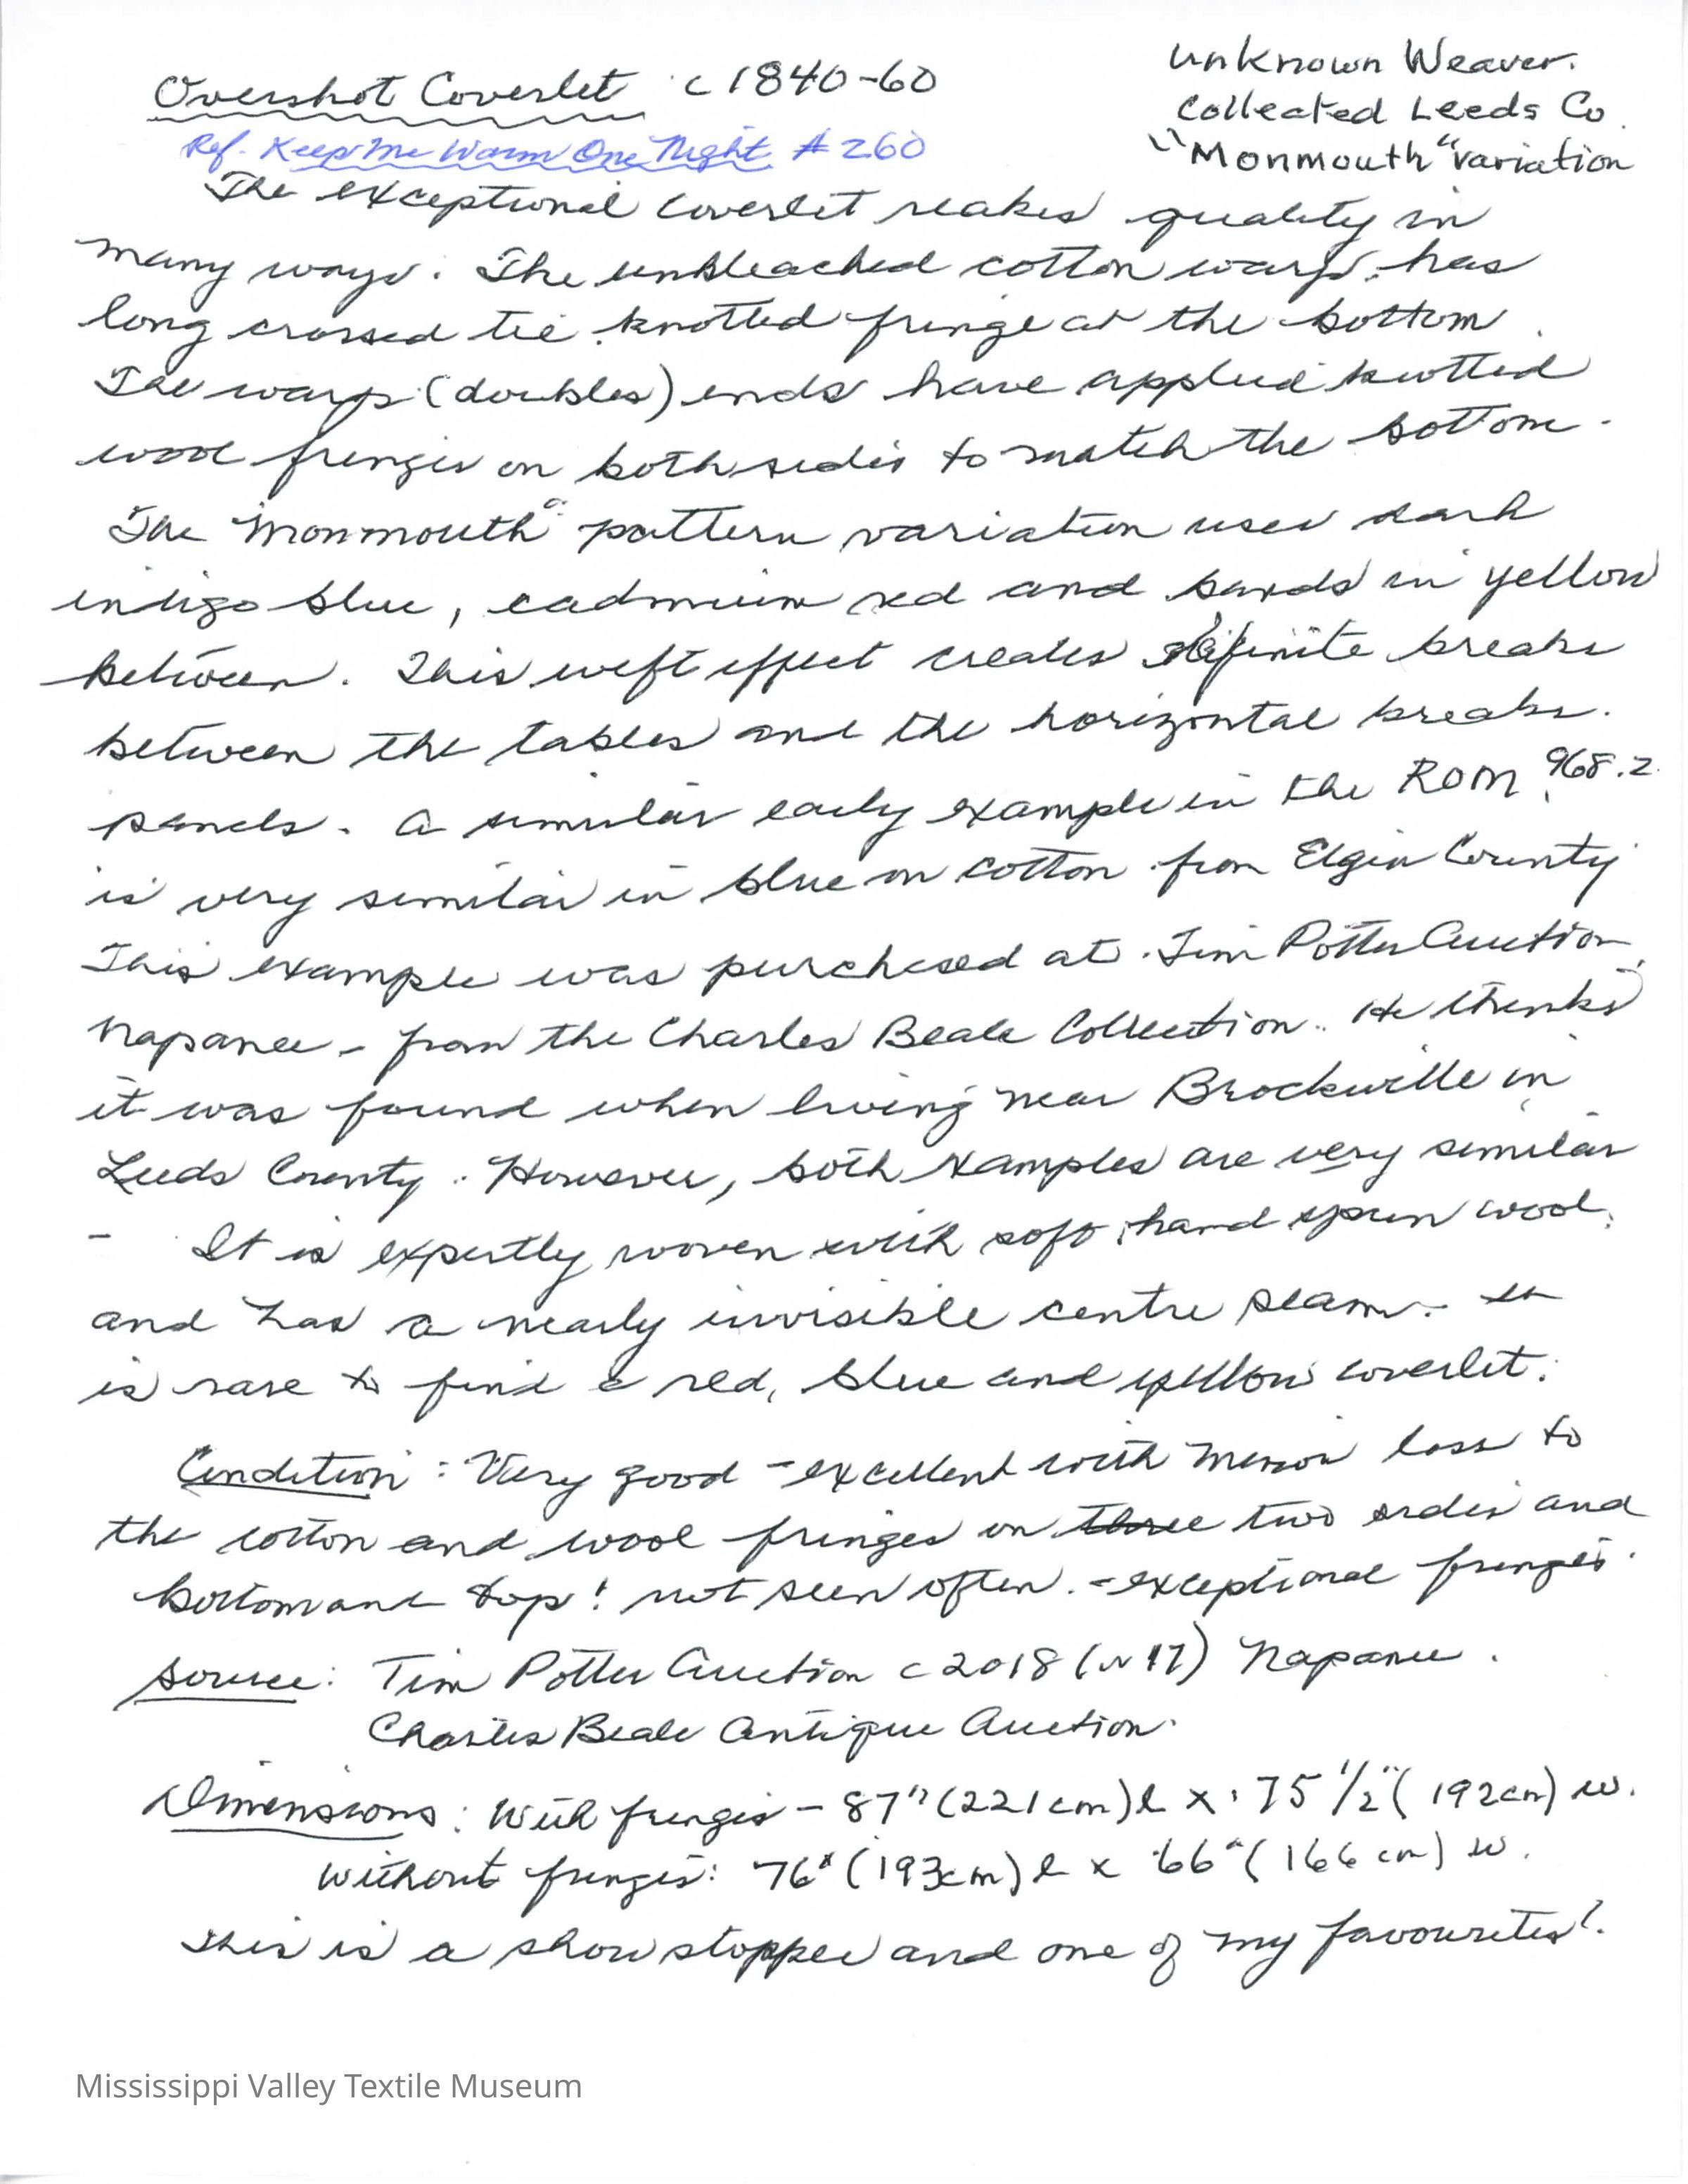 Overshot Coverlet c 1840-60
Unknown Weaver.
Collected Leeds Co.
"Monmouth" variation
Ref. Keep Me Warm One Night # 260
The exceptional coverlet reakes quality in
many ways. The unbleached cotton warp, has
long crossed tie knotted fringe at the bottom.
The warps (doubles) ends have applied knotted
wool fringes on both sides to match the bottom.
The "Monmouth" pattern variation uses dark
indigo blue, cadmium red and bands in yellow
between. This weft effect creates definite breaks
between the tables and the horizontal breaks.
panels. A similar early example in the ROM 968.2
is very similar in blue on cotton from Elgin County
This example was purchased at Tim Potter Auction,
Napanee - from the Charles Beale Collection. He thinks
it was found when living near Brockville in
Leeds County. However, both xamples are very similar
- It is expertly woven with soft hand spun wool,
and has a nearly invisible centre seam. It
is rare to find a red, blue and yellow coverlet.
Condition: Very good - excellent with minor loss to
the cotton and wool fringes on three two sides and
bottom and top! not seen often. - exceptional fringes.
Source: Tim Potter Auction c 2018 (or 17) Napanee.
Charles Beale Antique Auction.
Dimensions: With fringes - 87" (221cm) l x 75 1/2" (192cm) w.
Without fringes: 76" (193cm) l x 66" (166 cm) w.
This is a show stopper and one of my favourites!
Mississippi Valley Textile Museum